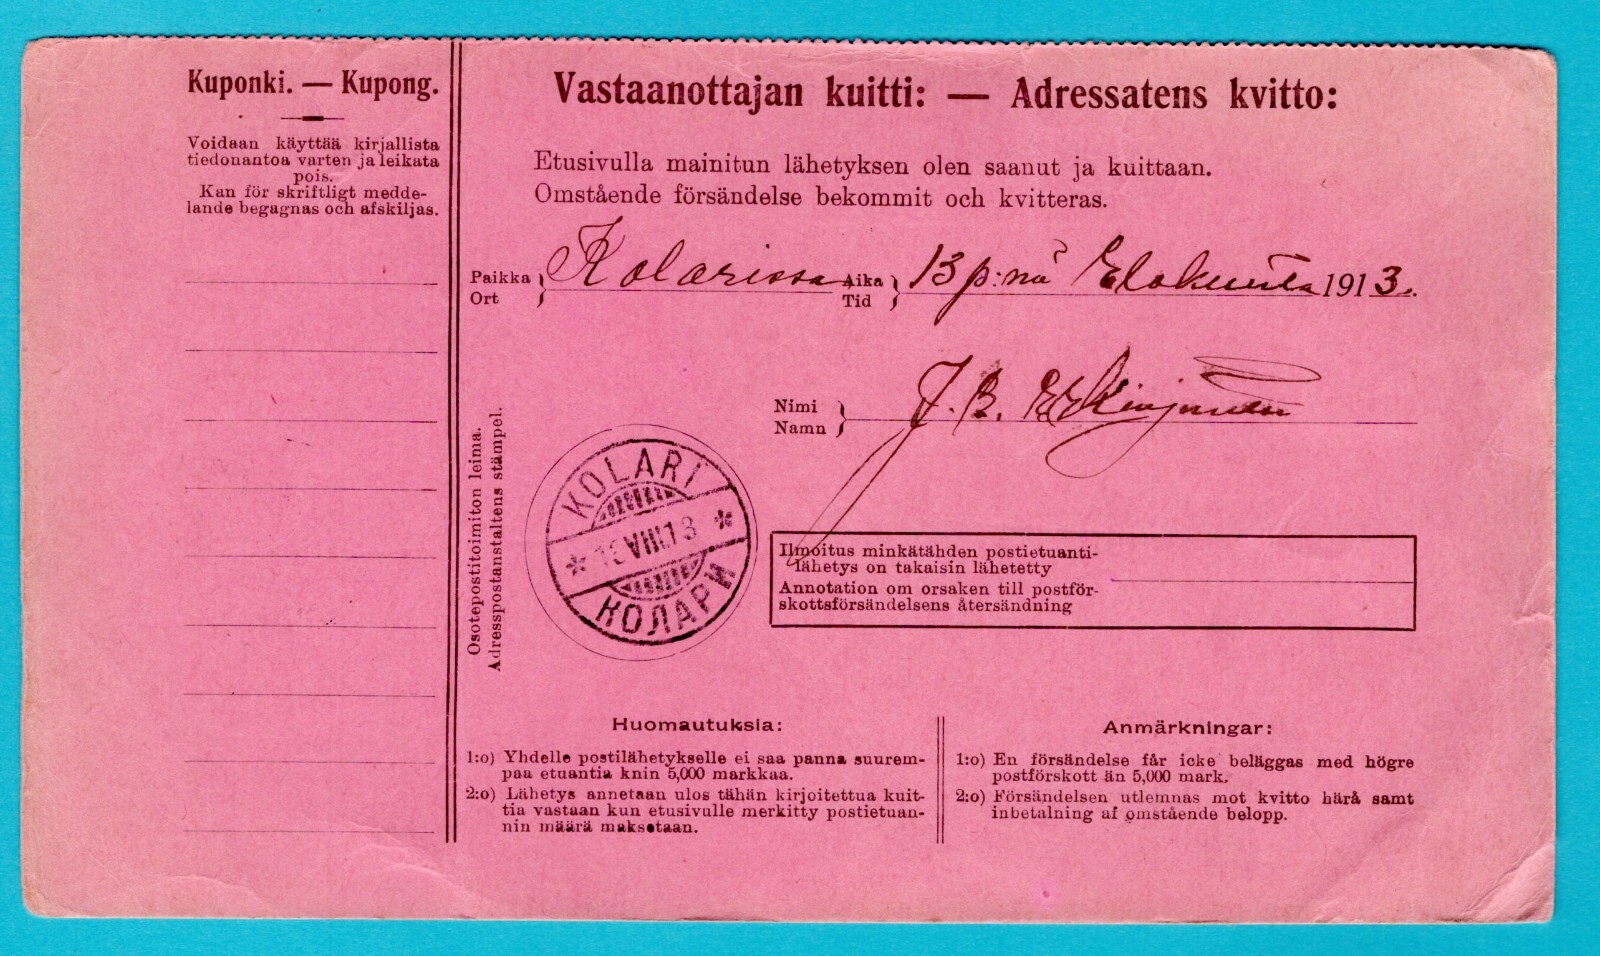 Kuponki. — Kupong.
Voidaan käyttää kirjallista
tiedonantoa varten ja leikata
pois.
Kan för skriftligt medde-
lande begagnas och afskiljas.
Vastaanottajan kuitti: — Adressatens kvitto:
Etusivulla mainitun lähetyksen olen saanut ja kuittaan.
Omstående försändelse bekommit och kvitteras.
Paikka Kolarissa Aika 13 p:nä Elokuuta 1913.
Ort Tid
Nimi J. B.
Namn
Osotepostitoimiton leima.
Adresspostanstaltens stämpel.
KOLARI
13 VIII 13
КОЛАРИ
Ilmoitus minkätähden postietuanti-
lähetys on takaisin lähetetty
Annotation om orsaken till postför-
skottsförsändelsens återsändning
Huomautuksia:
1:o) Yhdelle postilähetykselle ei saa panna suurem-
paa etuantia knin 5,000 markkaa.
2:o) Lähetys annetaan ulos tähän kirjoitettua kuit-
tia vastaan kun etusivulle merkitty postietuan-
nin määrä maksetaan.
Anmärkningar:
1:o) En försändelse får icke beläggas med högre
postförskott än 5,000 mark.
2:o) Försändelsen utlemnas mot kvitto härå samt
inbetalning af omstående belopp.